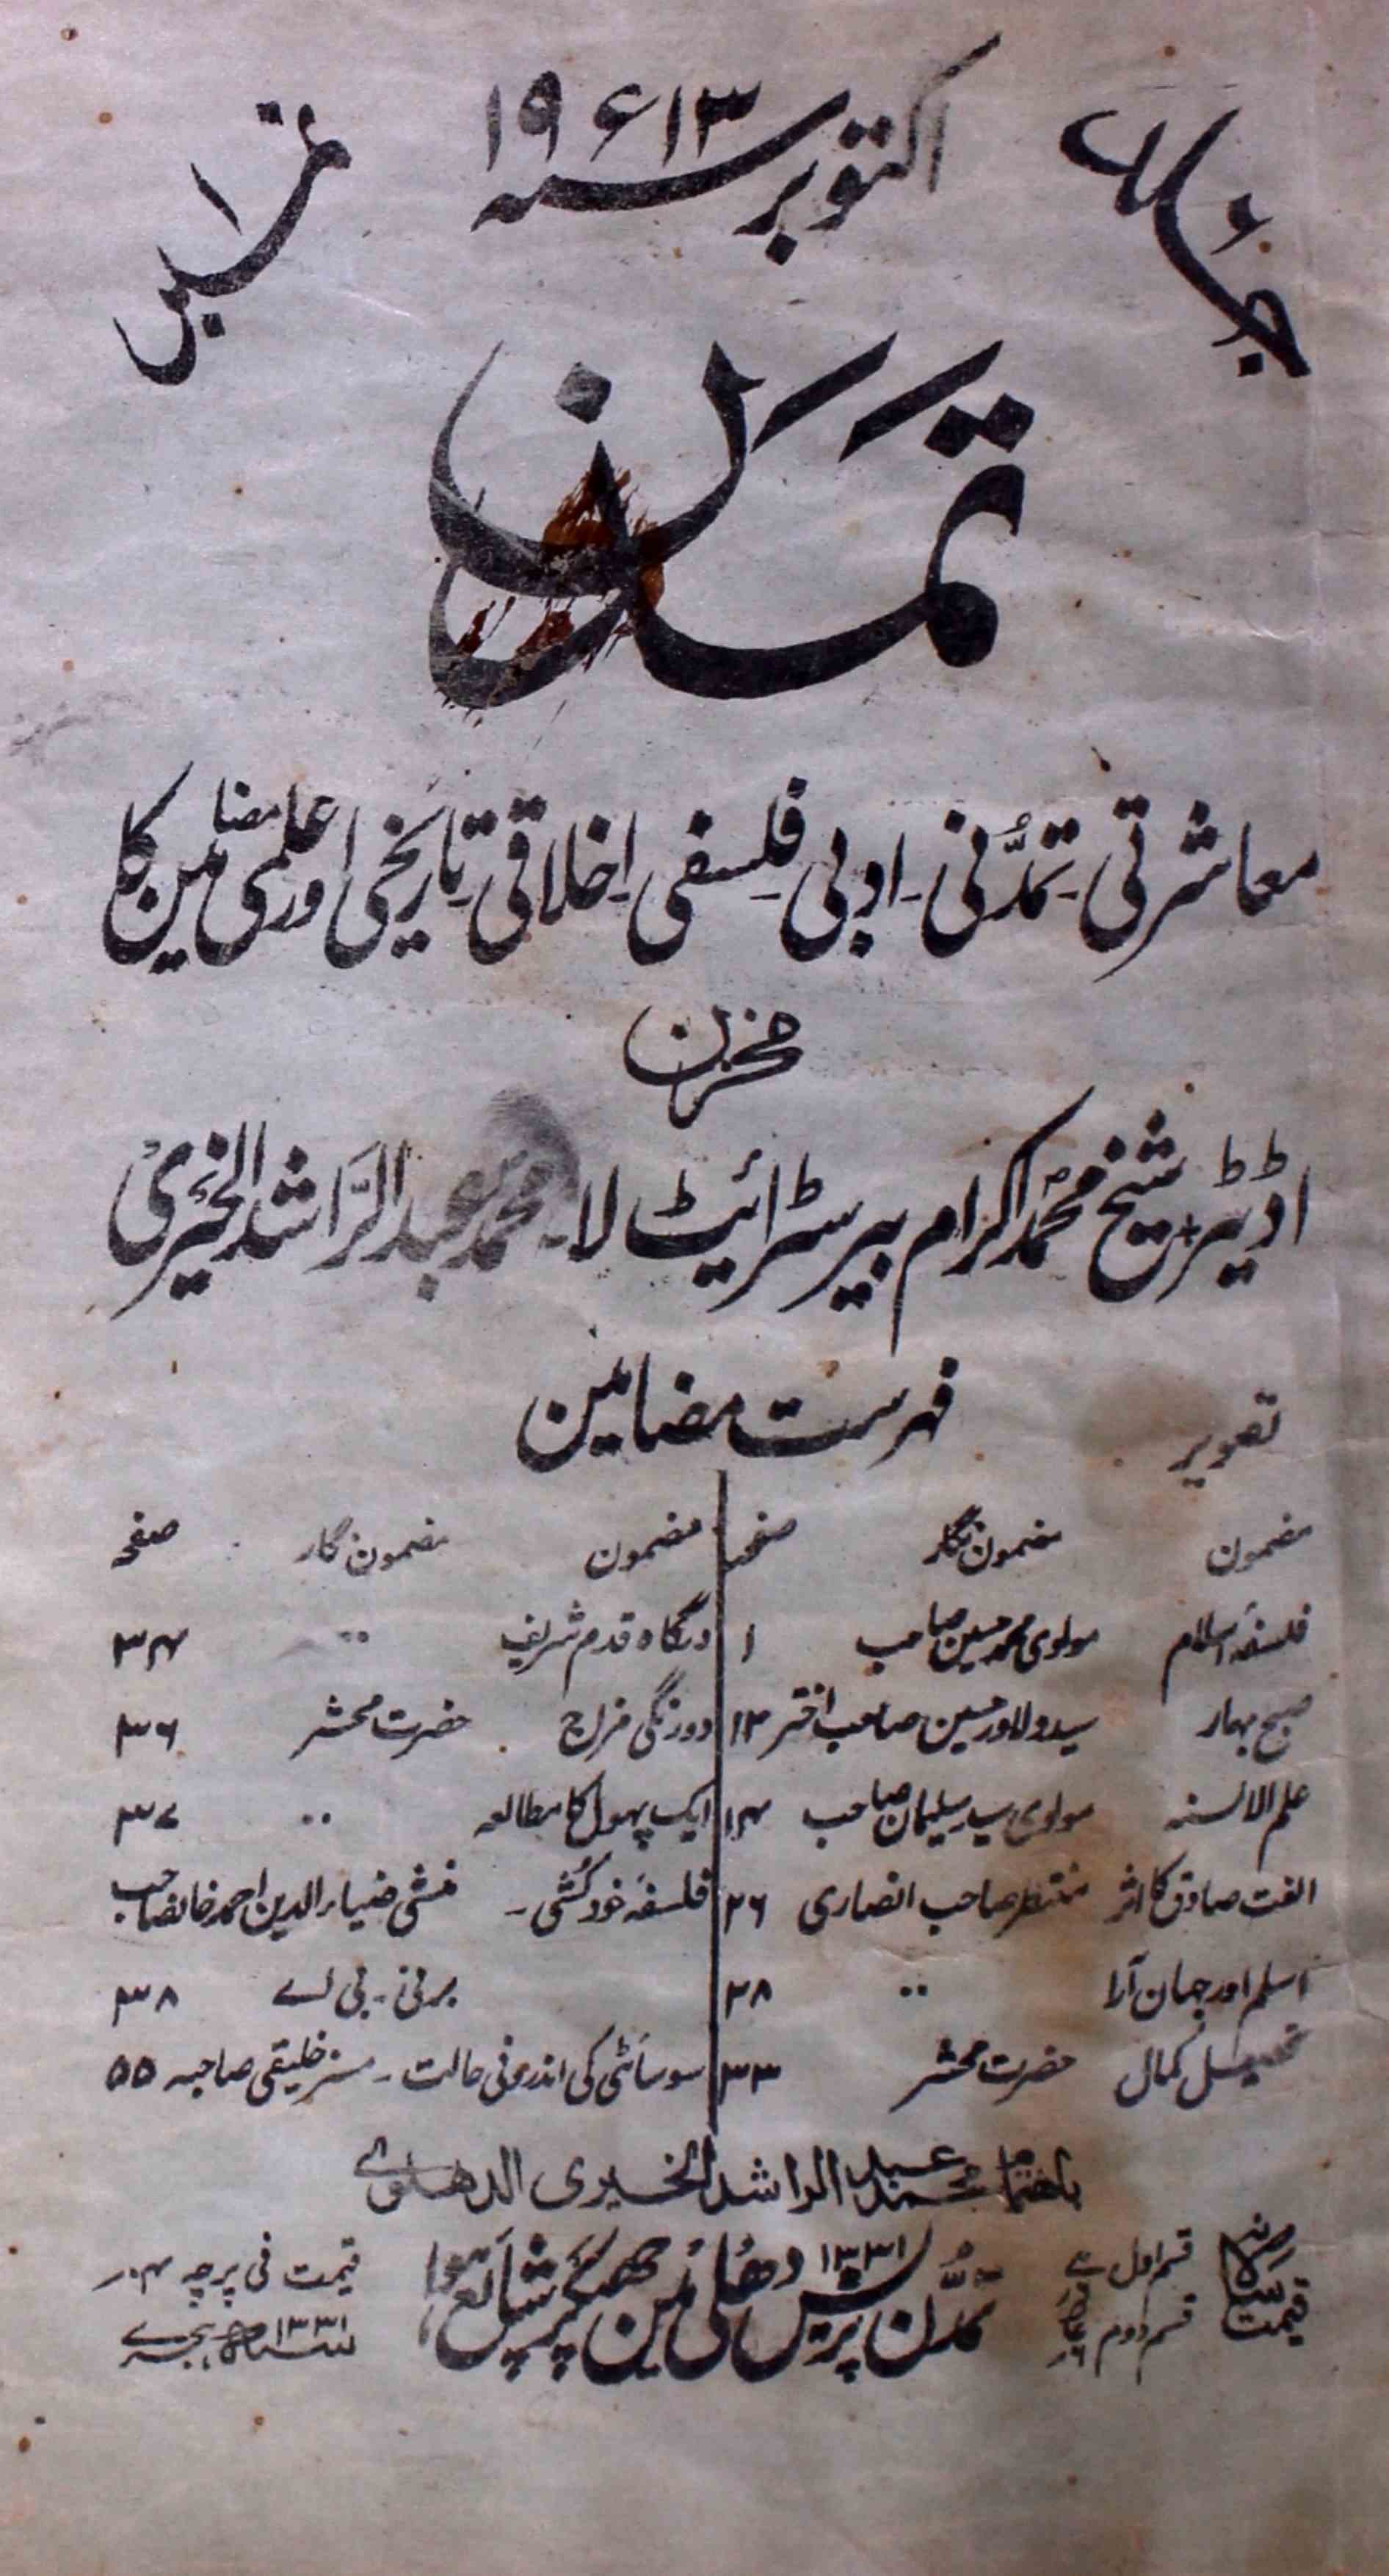 جلد ۶
اکتوبر سنہ ۱۹۱۳ء
نمبر ۱
تمدن
معاشرتی ۔ تمدّنی ۔ ادبی فلسفی اخلاقی تاریخی اور علمی مضامین کا
مخزن
اڈیٹر شیخ محمد اکرام بیرسٹرایٹ لا ۔ محمد عبدالرّاشد الخیری
تصویر
فہرست مضامین
مضمون مضمون نگار صفحہ
فلسفۂ اسلام مولوی محمد حسین صاحب ۱
صبح بہار سید دلاور حسین صاحب اختر ۱۳
علم الالسنہ مولوی سید سلیمان صاحب ۱۴
الفت صادق کا اثر منتظر صاحب انصاری ۲۶
اسلم اور جہان آرا ٫٫ ۲۸
تحصیل کمال حضرت محشر ۳۳
مضمون مضمون نگار صفحہ
درگاہ قدم شریف ٫٫ ۳۴
دورنگی مزاج حضرت محشر ۳۶
ایک پھول کا مطالعہ ٫٫ ۳۷
فلسفۂ خودکشی ۔ منشی ضیاء الدین احمد خانصاحب
برنی ۔ بی اے ۳۸
سوسائٹی کی اندرونی حالت ۔ مسز خلیقی صاحبہ ۵۵
باہتمام محمد عبدالراشد الخیری الدھلوی
تمدّن پریس دھلی میں چھپکر شایع ہوا
۱۳۳۱
قیمت سالانہ
قسم اول
قسم دوم
قیمت فی پرچہ ۴؍
سنہ ۱۳۳۱ ہجری